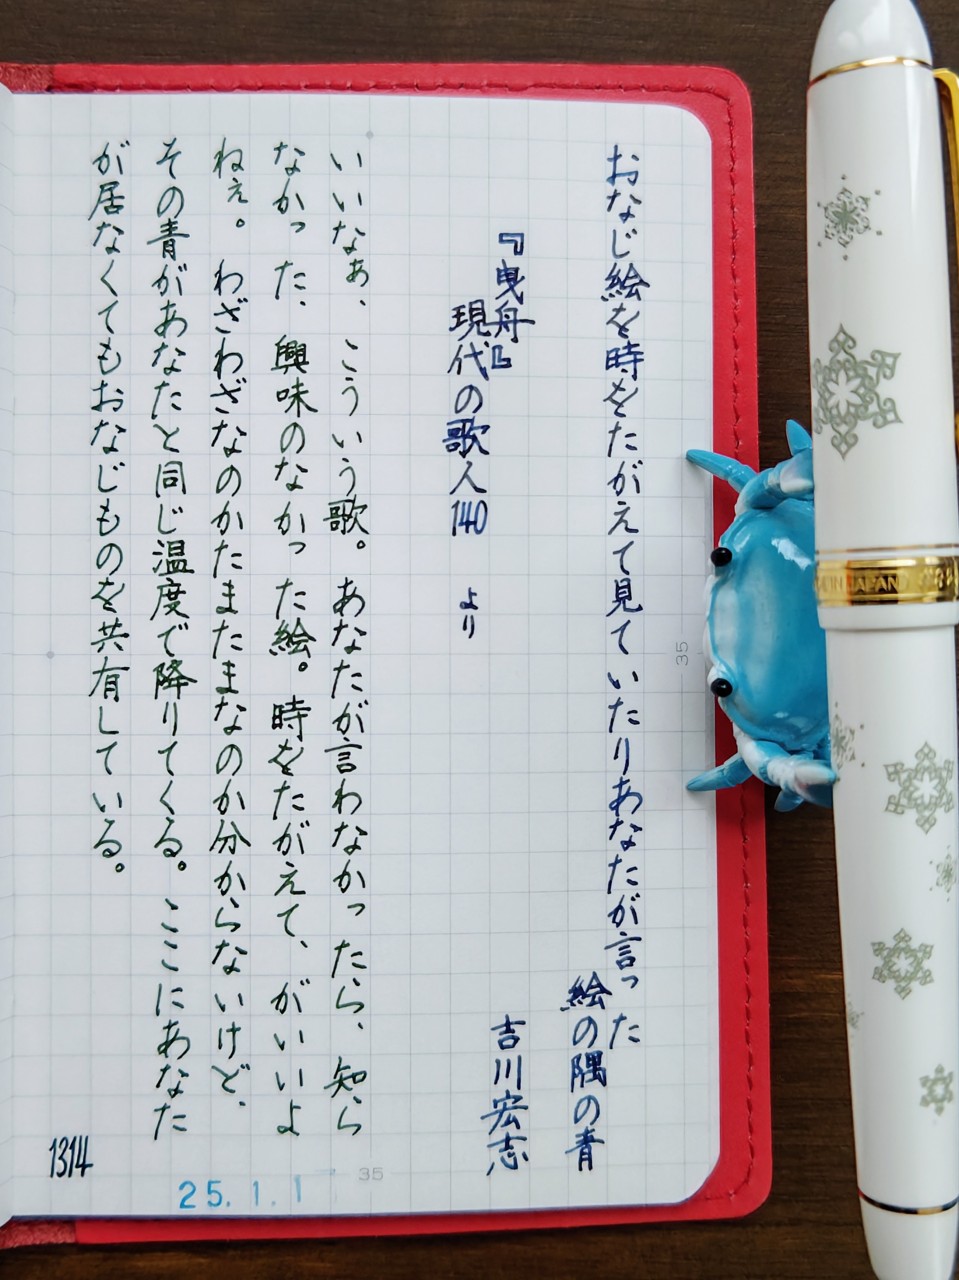 おなじ絵を時をたがえて見ていたりあなたが言った
絵の隅の青
吉川宏志
『曳舟』
現代の歌人140 より
いいなぁ、こういう歌。あなたが言わなかったら、知ら
なかった、興味のなかった絵。時をたがえて、がいいよ
ねぇ。わざわざなのかたまたまなのか分からないけど、
その青があなたと同じ温度で降りてくる。ここにあなた
が居なくてもおなじものを共有している。
1314
25.1.1
35
35
JAPAN